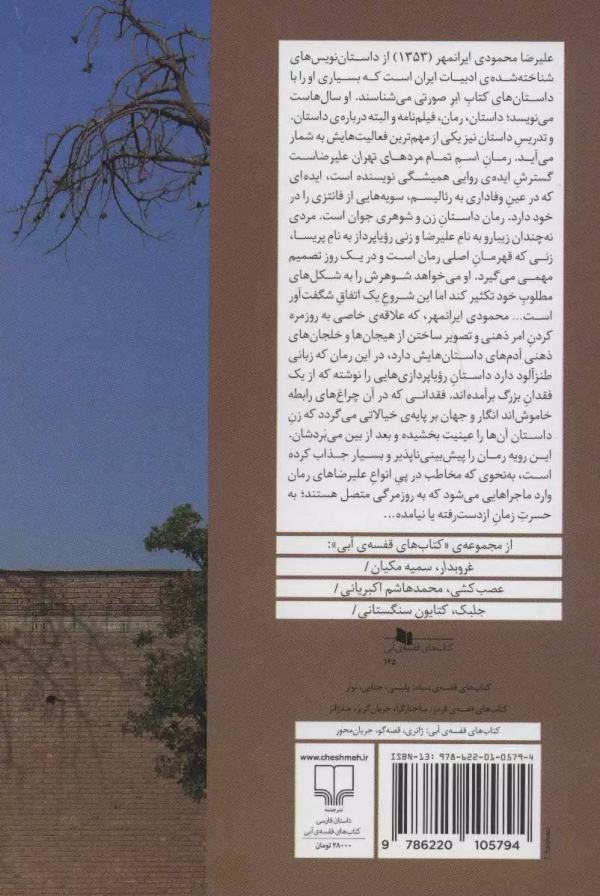 علیرضا محمودی ایرانمهر (۱۳۵۳) از داستان‌نویس‌های
شناخته‌شده‌ی ادبیات ایران است که بسیاری او را با
داستان‌های کتابِ ابرِ صورتی می‌شناسند. او سال‌هاست
می‌نویسد؛ داستان، رمان، فیلم‌نامه و البته درباره‌ی داستان.
و تدریسِ داستان نیز یکی از مهم‌ترین فعالیت‌هایش به شمار
می‌آید. رمانِ اسمِ تمام مردهای تهران علیرضاست
گسترشِ ایده‌ی روایی همیشگی نویسنده است، ایده‌ای
که در عینِ وفاداری به رئالیسم، سویه‌هایی از فانتزی را در
خود دارد. رمان داستانِ زن و شوهری جوان است. مردی
نه‌چندان زیبارو به نامِ علیرضا و زنی رؤیاپرداز به نام پریسا،
زنی که قهرمانِ اصلی رمان است و در یک روز تصمیم
مهمی می‌گیرد. او می‌خواهد شوهرش را به شکل‌های
مطلوبِ خود تکثیر کند اما این شروعِ یک اتفاقِ شگفت‌آور
است... محمودی ایرانمهر، که علاقه‌ی خاصی به روزمره
کردنِ امر ذهنی و تصویر ساختن از هیجان‌ها و خلجان‌های
ذهنی آدم‌های داستان‌هایش دارد، در این رمان که زبانی
طنزآلود دارد داستانِ رؤیاپردازی‌هایی را نوشته که از یک
فقدانِ بزرگ برآمده‌اند. فقدانی که در آن چراغ‌های رابطه
خاموش‌اند انگار و جهان بر پایه‌ی خیالاتی می‌گردد که زنِ
داستان آن‌ها را عینیت بخشیده و بعد از بین می‌بَردشان.
این رویه رمان را پیش‌بینی‌ناپذیر و بسیار جذاب کرده
است، به‌نحوی که مخاطب در پیِ انواعِ علیرضاهای رمان
وارد ماجراهایی می‌شود که به روزمرگی متصل هستند؛ به
حسرتِ زمانِ ازدست‌رفته یا نیامده...
از مجموعه‌ی «کتاب‌های قفسه‌ی آبی»:
غروبدار، سمیه مکیان /
عصب‌کشی، محمدهاشم اکبریانی /
جلبک، کتایون سنگستانی /
کتاب‌های قفسه‌ی آبی
۱۶۵
کتاب‌های قفسه‌ی سیاه: پلیسی، جنایی، نوار
کتاب‌های قفسه‌ی قرمز: ساختارگرا، جریان‌گریز، ضدژانر
کتاب‌های قفسه‌ی آبی: ژانری، قصه‌گو، جریان‌محور
www.cheshmeh.ir
نشرچشمه
داستان فارسی
کتاب‌های قفسه‌ی آبی
۲۸۰۰۰ تومان
ISBN-13: 978-622-01-0579-4
9 786220 105794